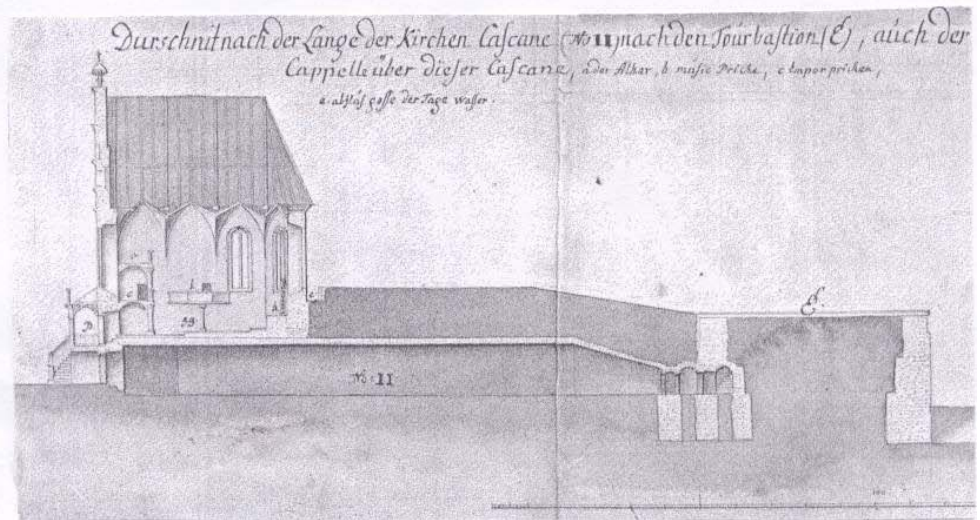 Durschnit nach der Lange der Kirchen Cascane (No 11) nach den Tourbastion (E), auch der
Cappelle über dieser Cascane, a der Althar, b music Priche, c Emporprichen,
e. der Tage wasser.
c
c
b
a
e
D
BB
E
No. 11
100